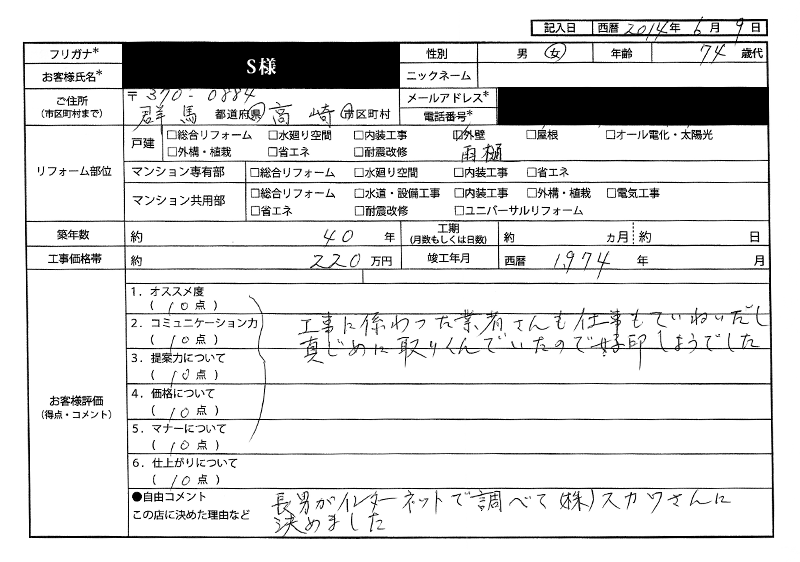 記入日 西暦 2014年 6月 9日
フリガナ*
お客様氏名* S様 性別 男 女 年齢 74 歳代
ニックネーム
ご住所 (市区町村まで) 〒370-0884
群馬 都道府県 高崎 市区町村
メールアドレス*
電話番号*
リフォーム部位
戸建 □総合リフォーム □水廻り空間 □内装工事 ☑外壁 □屋根 □オール電化・太陽光
□外構・植栽 □省エネ □耐震改修 雨樋
マンション専有部 □総合リフォーム □水廻り空間 □内装工事 □省エネ
マンション共用部 □総合リフォーム □水道・設備工事 □内装工事 □外構・植栽 □電気工事
□省エネ □耐震改修 □ユニバーサルリフォーム
築年数 約 40 年 工期 (月数もしくは日数) 約 ヵ月 約 日
工事価格帯 約 220 万円 竣工年月 西暦 1974 年 月
お客様評価
(得点・コメント)
1. オススメ度
( 10 点 )
2. コミュニケーション力
( 10 点 )
3. 提案力について
( 10 点 )
4. 価格について
( 10 点 )
5. マナーについて
( 10 点 )
6. 仕上がりについて
( 10 点 )
工事に係わった業者さんも仕事もていねいだし
真じめに取りくんでいたので好印しょうでした
●自由コメント
この店に決めた理由など
長男がインターネットで調べて(株)スカワさんに
決めました